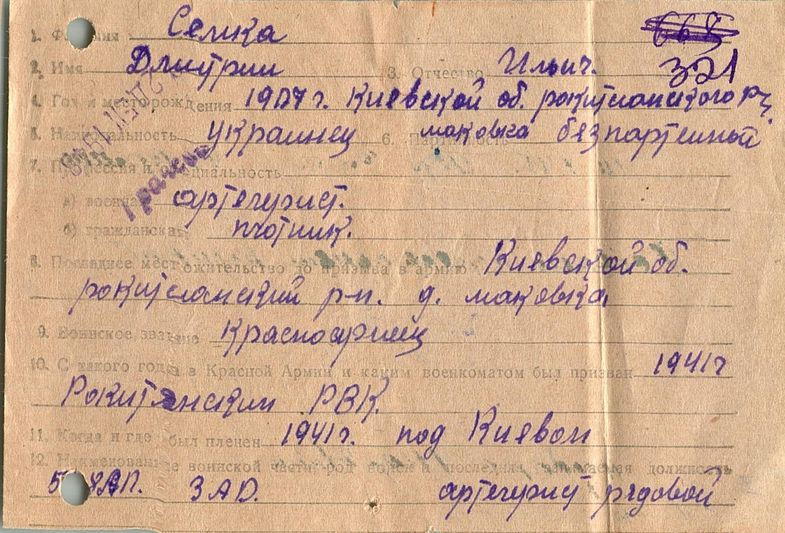 668
1. Фамилия Селка
321
2. Имя Дмитрии 3. Отчество Ильич.
4. Год и место рождения 1907 г. Киевской об. рокитслонского
5. Национальность украинец маковка безпартейный
7. Профессия и специальность
а) военная артегурист.
б) гражданская плотник.
8. Последнее местожительство до призыва в армию Киевской об.
рокитслонский р-н. д. маковка
9. Воинское звание Красноармец
10. С какого года в Красной Армии и каким военкоматом был призван 1941 г
Рокитянским РВК.
11. Когда и где был пленен 1941 г. под Киевом
12. Наименование воинской части род войск и последняя занимаемая должность
ЗАД. артегурист рядовой